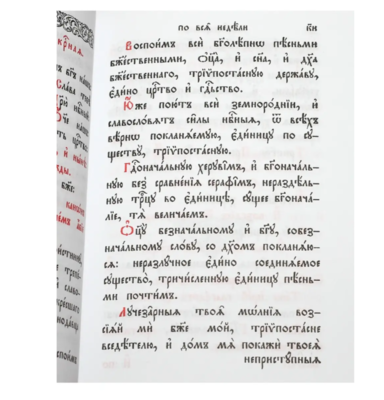 по всѧ̑ недѣ́ли
н҃и
Воспои́мъ всѝ бг҃олѣ́пнѡ пѣ́сньми
бж҃е́ственными, ѻ҆ц҃а̀, и҆ сн҃а, и҆ дх҃а
бж҃е́ственнаго, трїѵпоста́сную держа́ву,
є҆ди́но црⷭ҇тво и҆ гдⷭ҇ьство.
Ю҆́же пою́тъ всѝ земноро́днїи, и҆
славосло́вѧтъ си̑лы нбⷭ҇ныѧ, ѿ всѣ́хъ
вѣ́рнѡ покланѧ́емую, є҆ди́ницу по су-
ществꙋ̀, трїѵпоста́сную.
Гдⷭ҇онача́льную херꙋві̑мъ, и҆ бг҃онача́ль-
ную без̾ сравне́нїѧ серафі̑мъ, нераздѣ́ль-
ную трⷪ҇цу во є҆ди́ницѣ, су́щее бг҃онача́-
лїе, тѧ̀ велича́емъ.
Ѻ҆ц҃у̀ безнача́льному и҆ бг҃у, собез-
нача́льному сло́ву, со дх҃омъ покланѧ́ю-
сѧ: неразлу́чное є҆ди́но соединѧ́емое
существо̀, тричи́сленную є҆ди́ницу пѣ́сньми
почти́мъ.
Лучеза̑рныѧ твоѧ̑ мѡ́лнїѧ воз-
сїѧ́й мѝ бж҃е мо́й, трїѵпоста́сне
вседѣ́телю, и҆ до́мъ мѧ̀ покажѝ твоеѧ̀
непристу́пныѧ